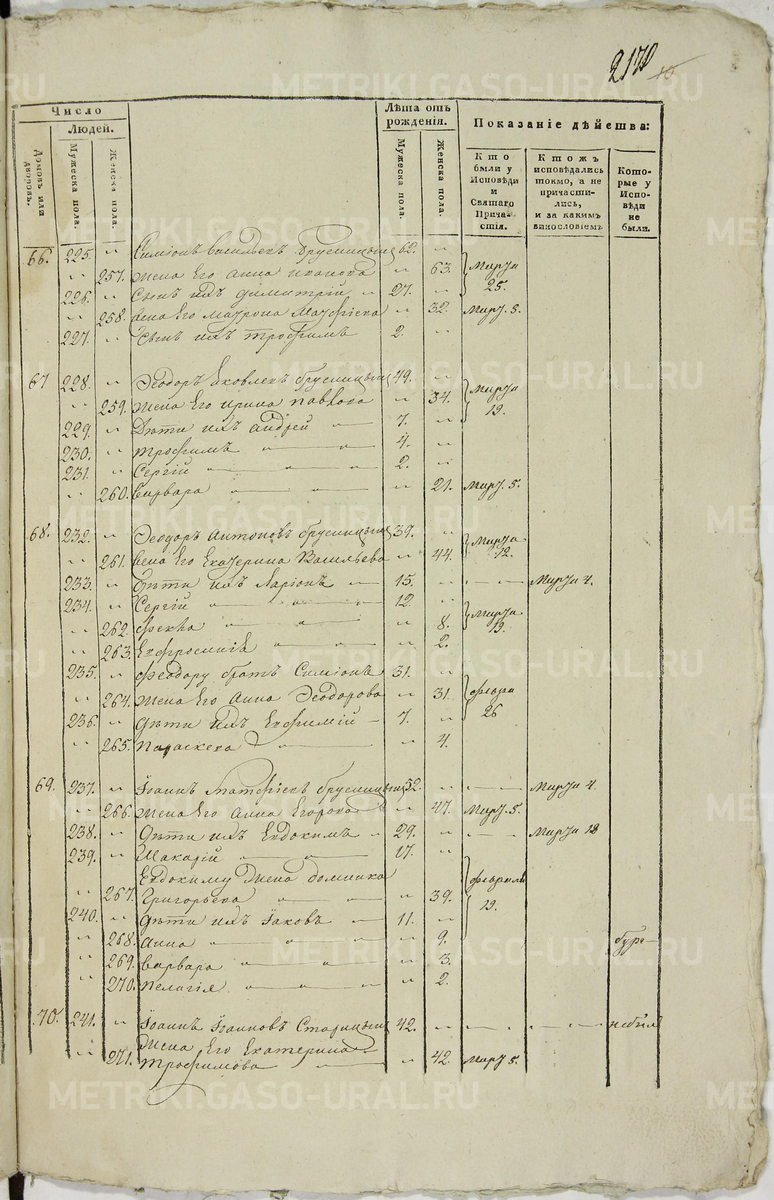 217
10
Число
Людей.
Домовъ или дворовъ.
Мужеска пола.
Женска пола.
Лѣта отъ рожденія.
Мужеска пола.
Женска пола.
Показаніе дѣйства:
Кто были у Исповѣди и Святаго Причастія.
Кто жъ исповѣдались токмо, а не причастились, и за какимъ винословіемъ
Которые у Исповѣди не были.
66. 225. " Симіонъ Васильевъ Брусницынъ 62. "
" 257. Жена Его Анна Иванова " 63. Марта 25.
226. " Сынъ ихъ Димитрій " 27. "
" 258. Жена Его Матрона Матфіева " 32. Март. 5.
227. " Сынъ ихъ Трофимъ 2. "
67 228. " Ѳеодоръ Яковлевъ Брусницынъ 49. "
" 259. Жена Его Ирина Павлова " 34. Марта 19.
229. " Дѣти ихъ Андрей — 7. "
230. " Трофимъ 4. "
231. " Сергій 2. "
" 260. Варвара " 21. Март. 5.
68. 232. " Ѳеодоръ Антоновъ Брусницынъ 39. "
" 261. Жена Его Екатерина Васильева " 44. Марта 12.
233. " Дѣти ихъ Ларіонъ — 15. " Марта 4.
234. " Сергій 12. "
" 262. Ѳекла " 8. Марта 19.
" 263. Евфросинія " 2.
235. " Ѳеодору братъ Симіонъ 31. "
" 264. Жена Его Анна Ѳеодорова " 31. Февра 26
236. " Дѣти ихъ Евфимій — 7. "
" 265. Параскева " 4.
69. 237. " Іоаннъ Матфіевъ Брусницынъ 52. " Марта 4.
" 266. Жена Его Анна Егорова " 47. Март. 5.
238. " Дѣти ихъ Евдокимъ " 29. " Марта 18
239. " Макарій 17. "
Евдокиму Жена Домника
" 267. Григорьева " 39. Февраля 19.
240. " Дѣти ихъ Іаковъ — 11. "
" 268. Анна " 9.
" 269. Варвара " 3.
" 270. Пелагія " 2.
70. 241. " Іоаннъ Іоанновъ Старицынъ 42. " небылъ
Жена Его Екатерина
" 271. Трофимова " 42. Март. 5.
METRIKI.GASO-URAL.RU